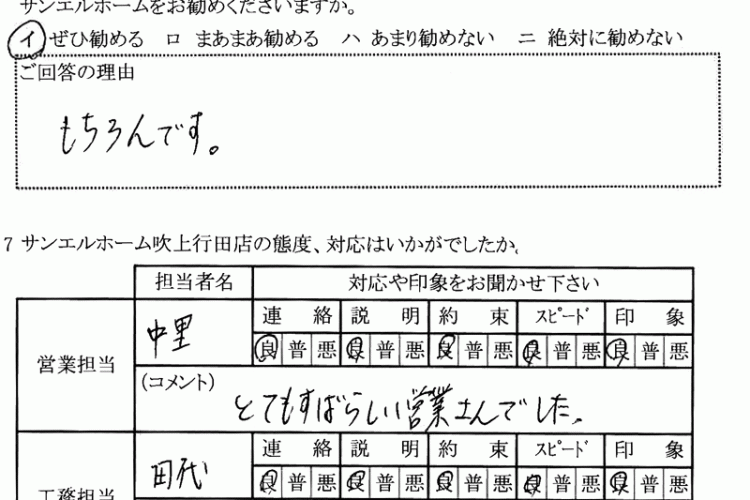 サンエルホームをお勧めくださいますか。
イ ぜひ勧める ロ まあまあ勧める ハ あまり勧めない ニ 絶対に勧めない
ご回答の理由
もちろんです。
7 サンエルホーム吹上行田店の態度、対応はいかがでしたか。
担当者名 対応や印象をお聞かせ下さい
営業担当 中里 連絡 説明 約束 スピード 印象
良 普 悪 良 普 悪 良 普 悪 良 普 悪 良 普 悪
(コメント)
とてもすばらしい営業さんでした。
工務担当 田代 連絡 説明 約束 スピード 印象
良 普 悪 良 普 悪 良 普 悪 良 普 悪 良 普 悪